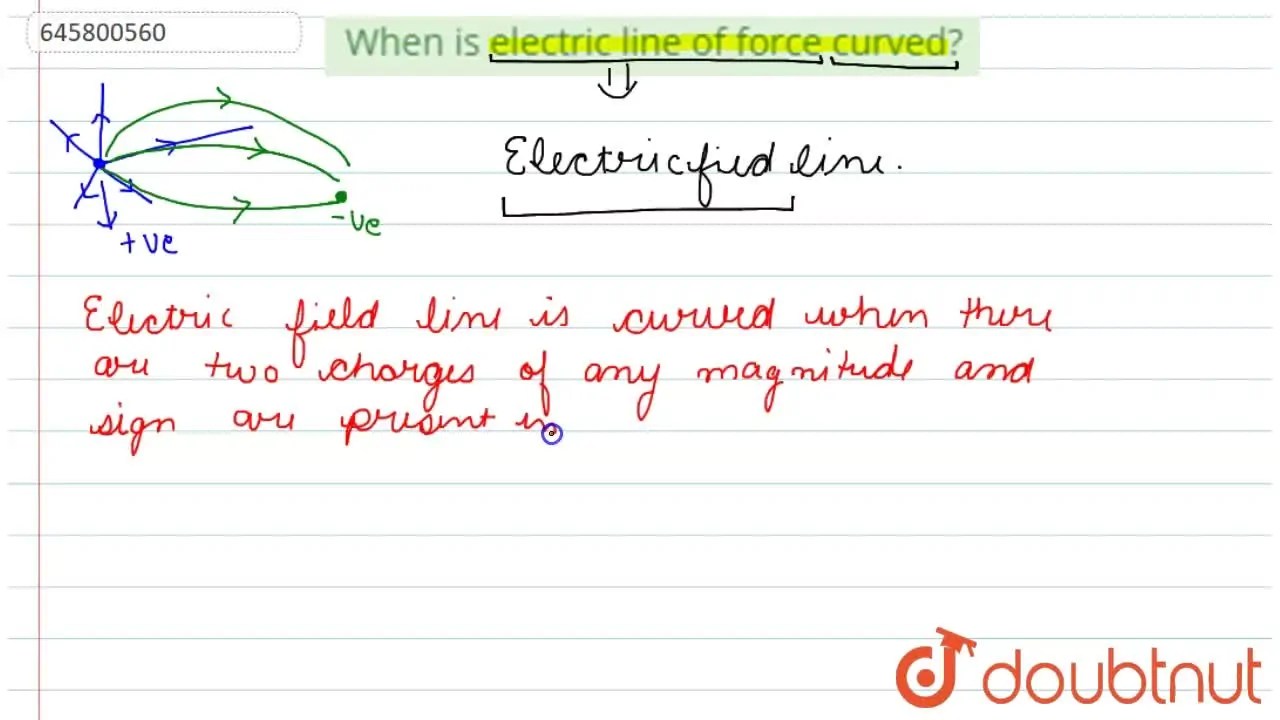 645800560
When is electric line of force curved?
Electricified line.
-ve
+ve
Electric field line is curved when there
are two charges of any magnitude and
sign are present in
doubtnut